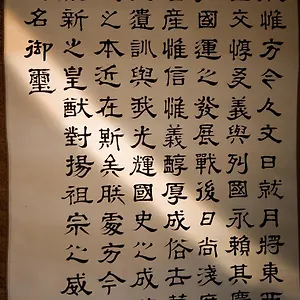 惟方今人文日就月將東西
交惇友義與列國永賴其慶
國運之發展戰後日尚淺庶
產惟信惟義醇厚成俗去華
遺訓與我光輝國史之成
之本近在斯矣朕處方今
新之皇猷對揚祖宗之威
名御璽